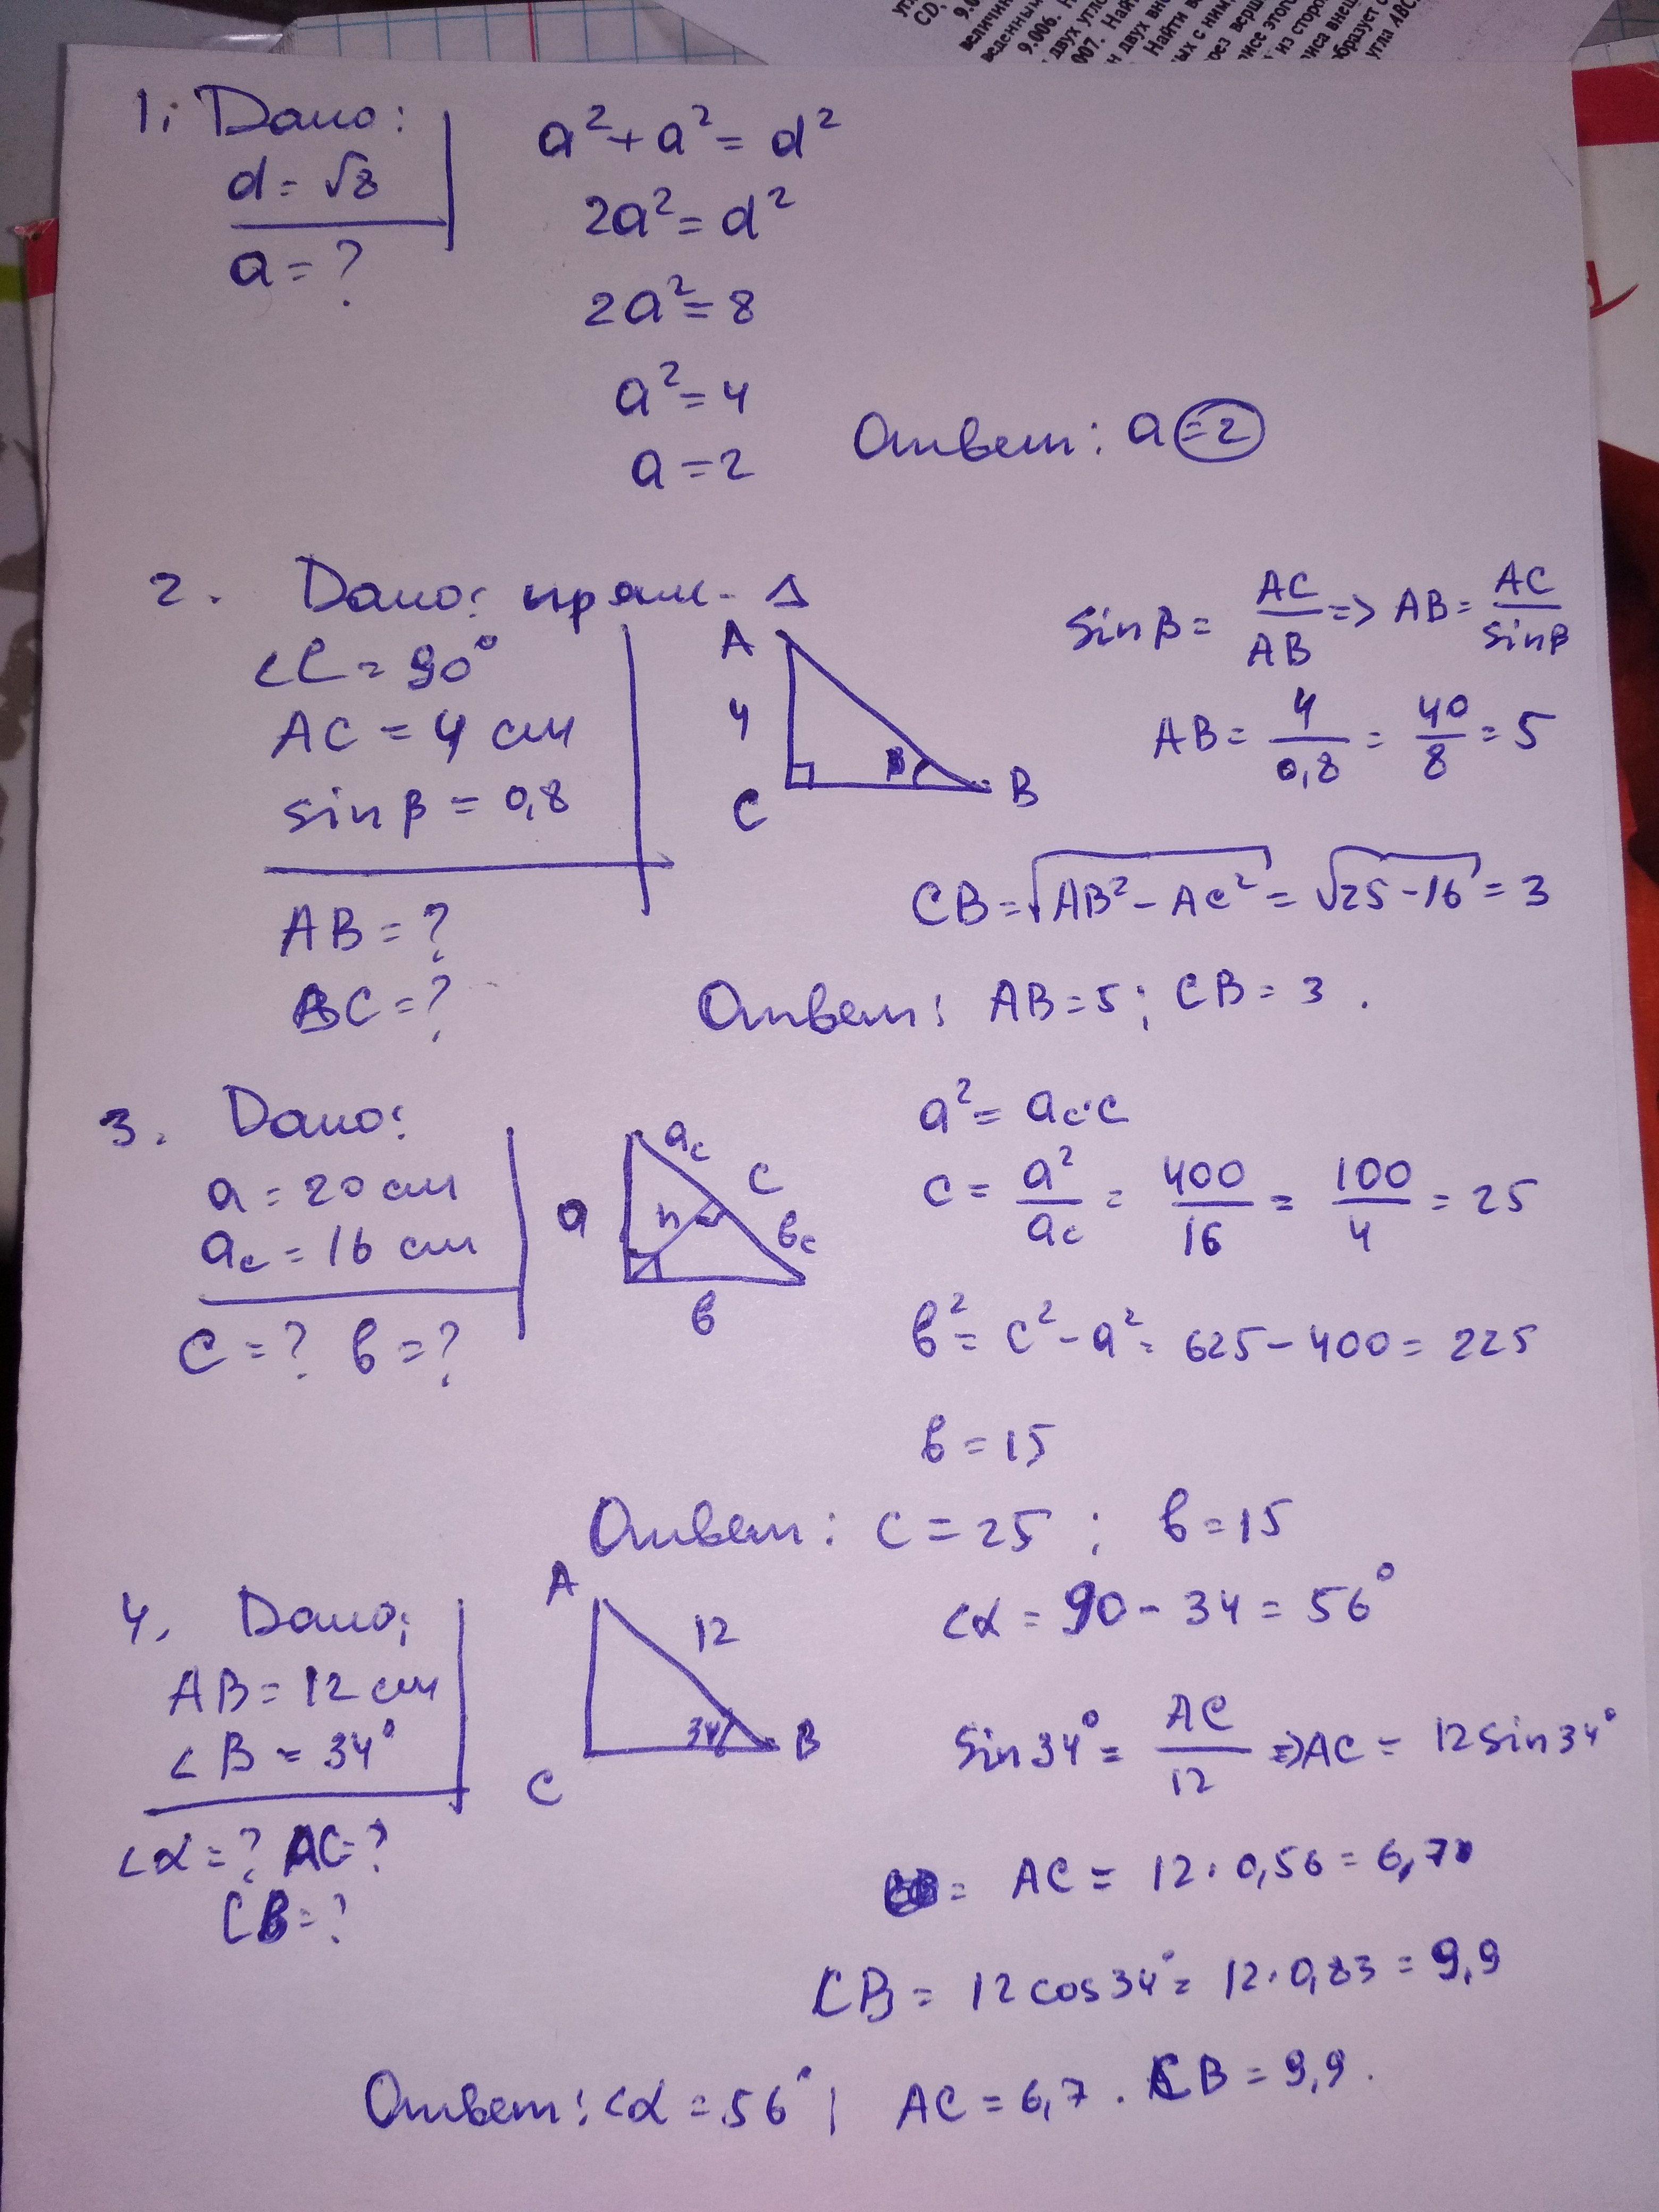 1. Дано:
d = √8
a = ?
a² + a² = d²
2a² = d²
2a² = 8
a² = 4
a = 2
Ответ: a = 2
2. Дано: прям. Δ
∠C = 90°
AC = 4 см
sin β = 0,8
AB = ?
BC = ?
A
4
C
β
B
sin β = AC/AB => AB = AC/sin β
AB = 4/0,8 = 40/8 = 5
CB = √(AB² - AC²) = √(25-16) = 3
Ответ: AB = 5; CB = 3.
3. Дано:
a = 20 см
a_c = 16 см
c = ? в = ?
a_c
c
a
h
в_c
в
a² = a_c·c
c = a²/a_c = 400/16 = 100/4 = 25
в² = c² - a² = 625 - 400 = 225
в = 15
Ответ: c = 25; в = 15
4. Дано:
AB = 12 см
∠B = 34°
∠α = ? AC = ?
CB = ?
A
12
34
B
C
∠α = 90 - 34 = 56°
sin 34° = AC/12 => AC = 12 sin 34°
= AC = 12 · 0,56 = 6,7
CB = 12 cos 34° = 12 · 0,83 = 9,9
Ответ: ∠α = 56°; AC = 6,7. CB = 9,9.
CD,
9.006.
007. Най
Найти
угла ABC